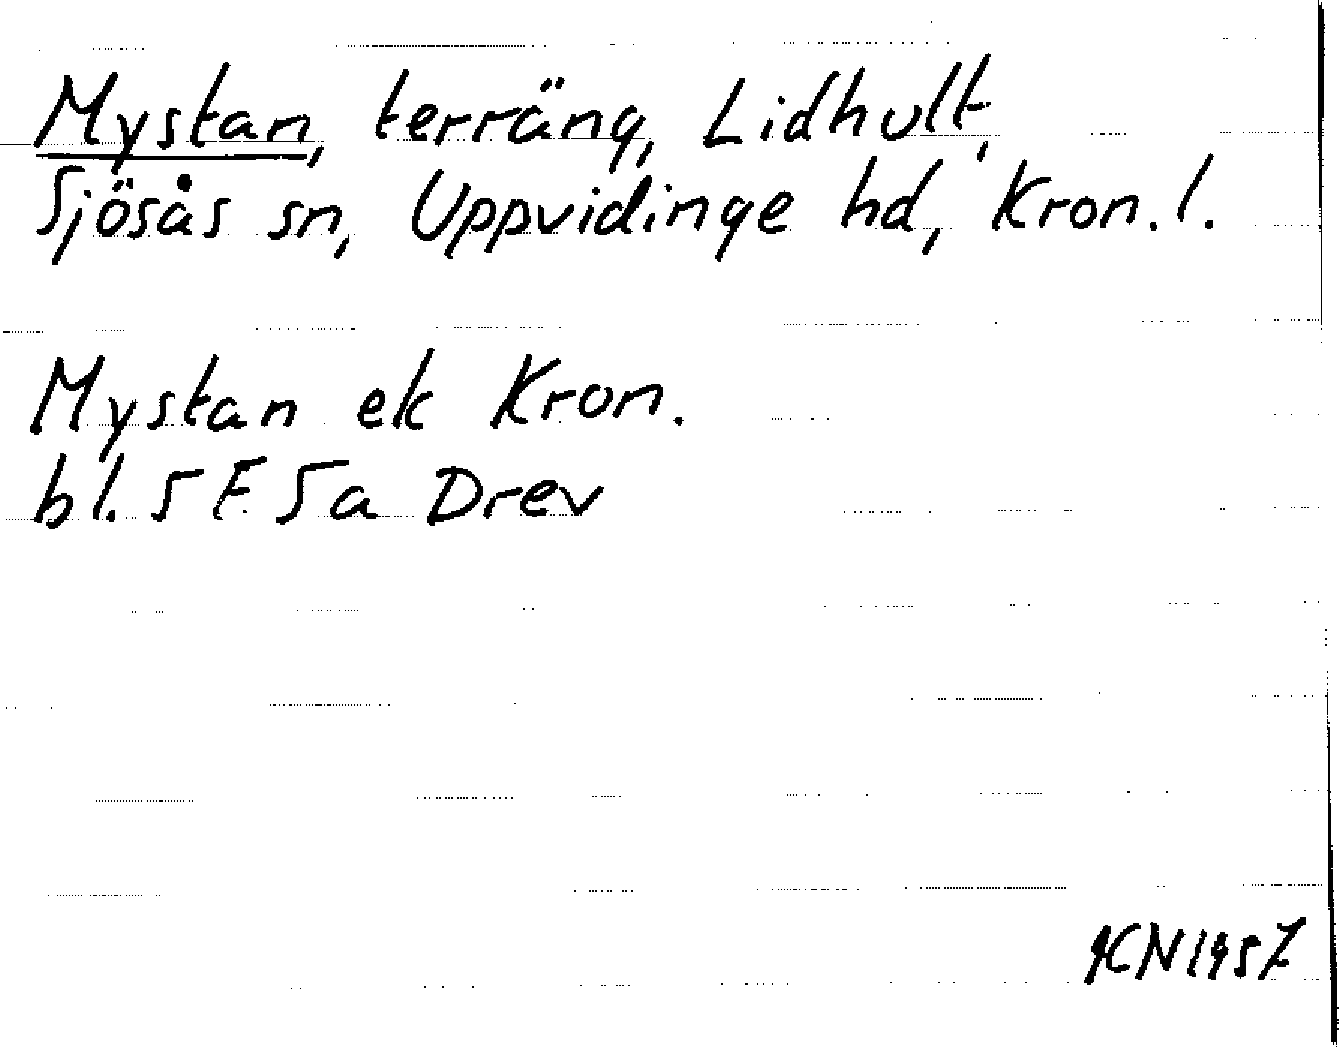 Mystan, terräng, Lidhult,
Sjösås sn, Uppvidinge hd, Kron. l.
Mystan ek Kron.
bl. 5 F 5a Drev